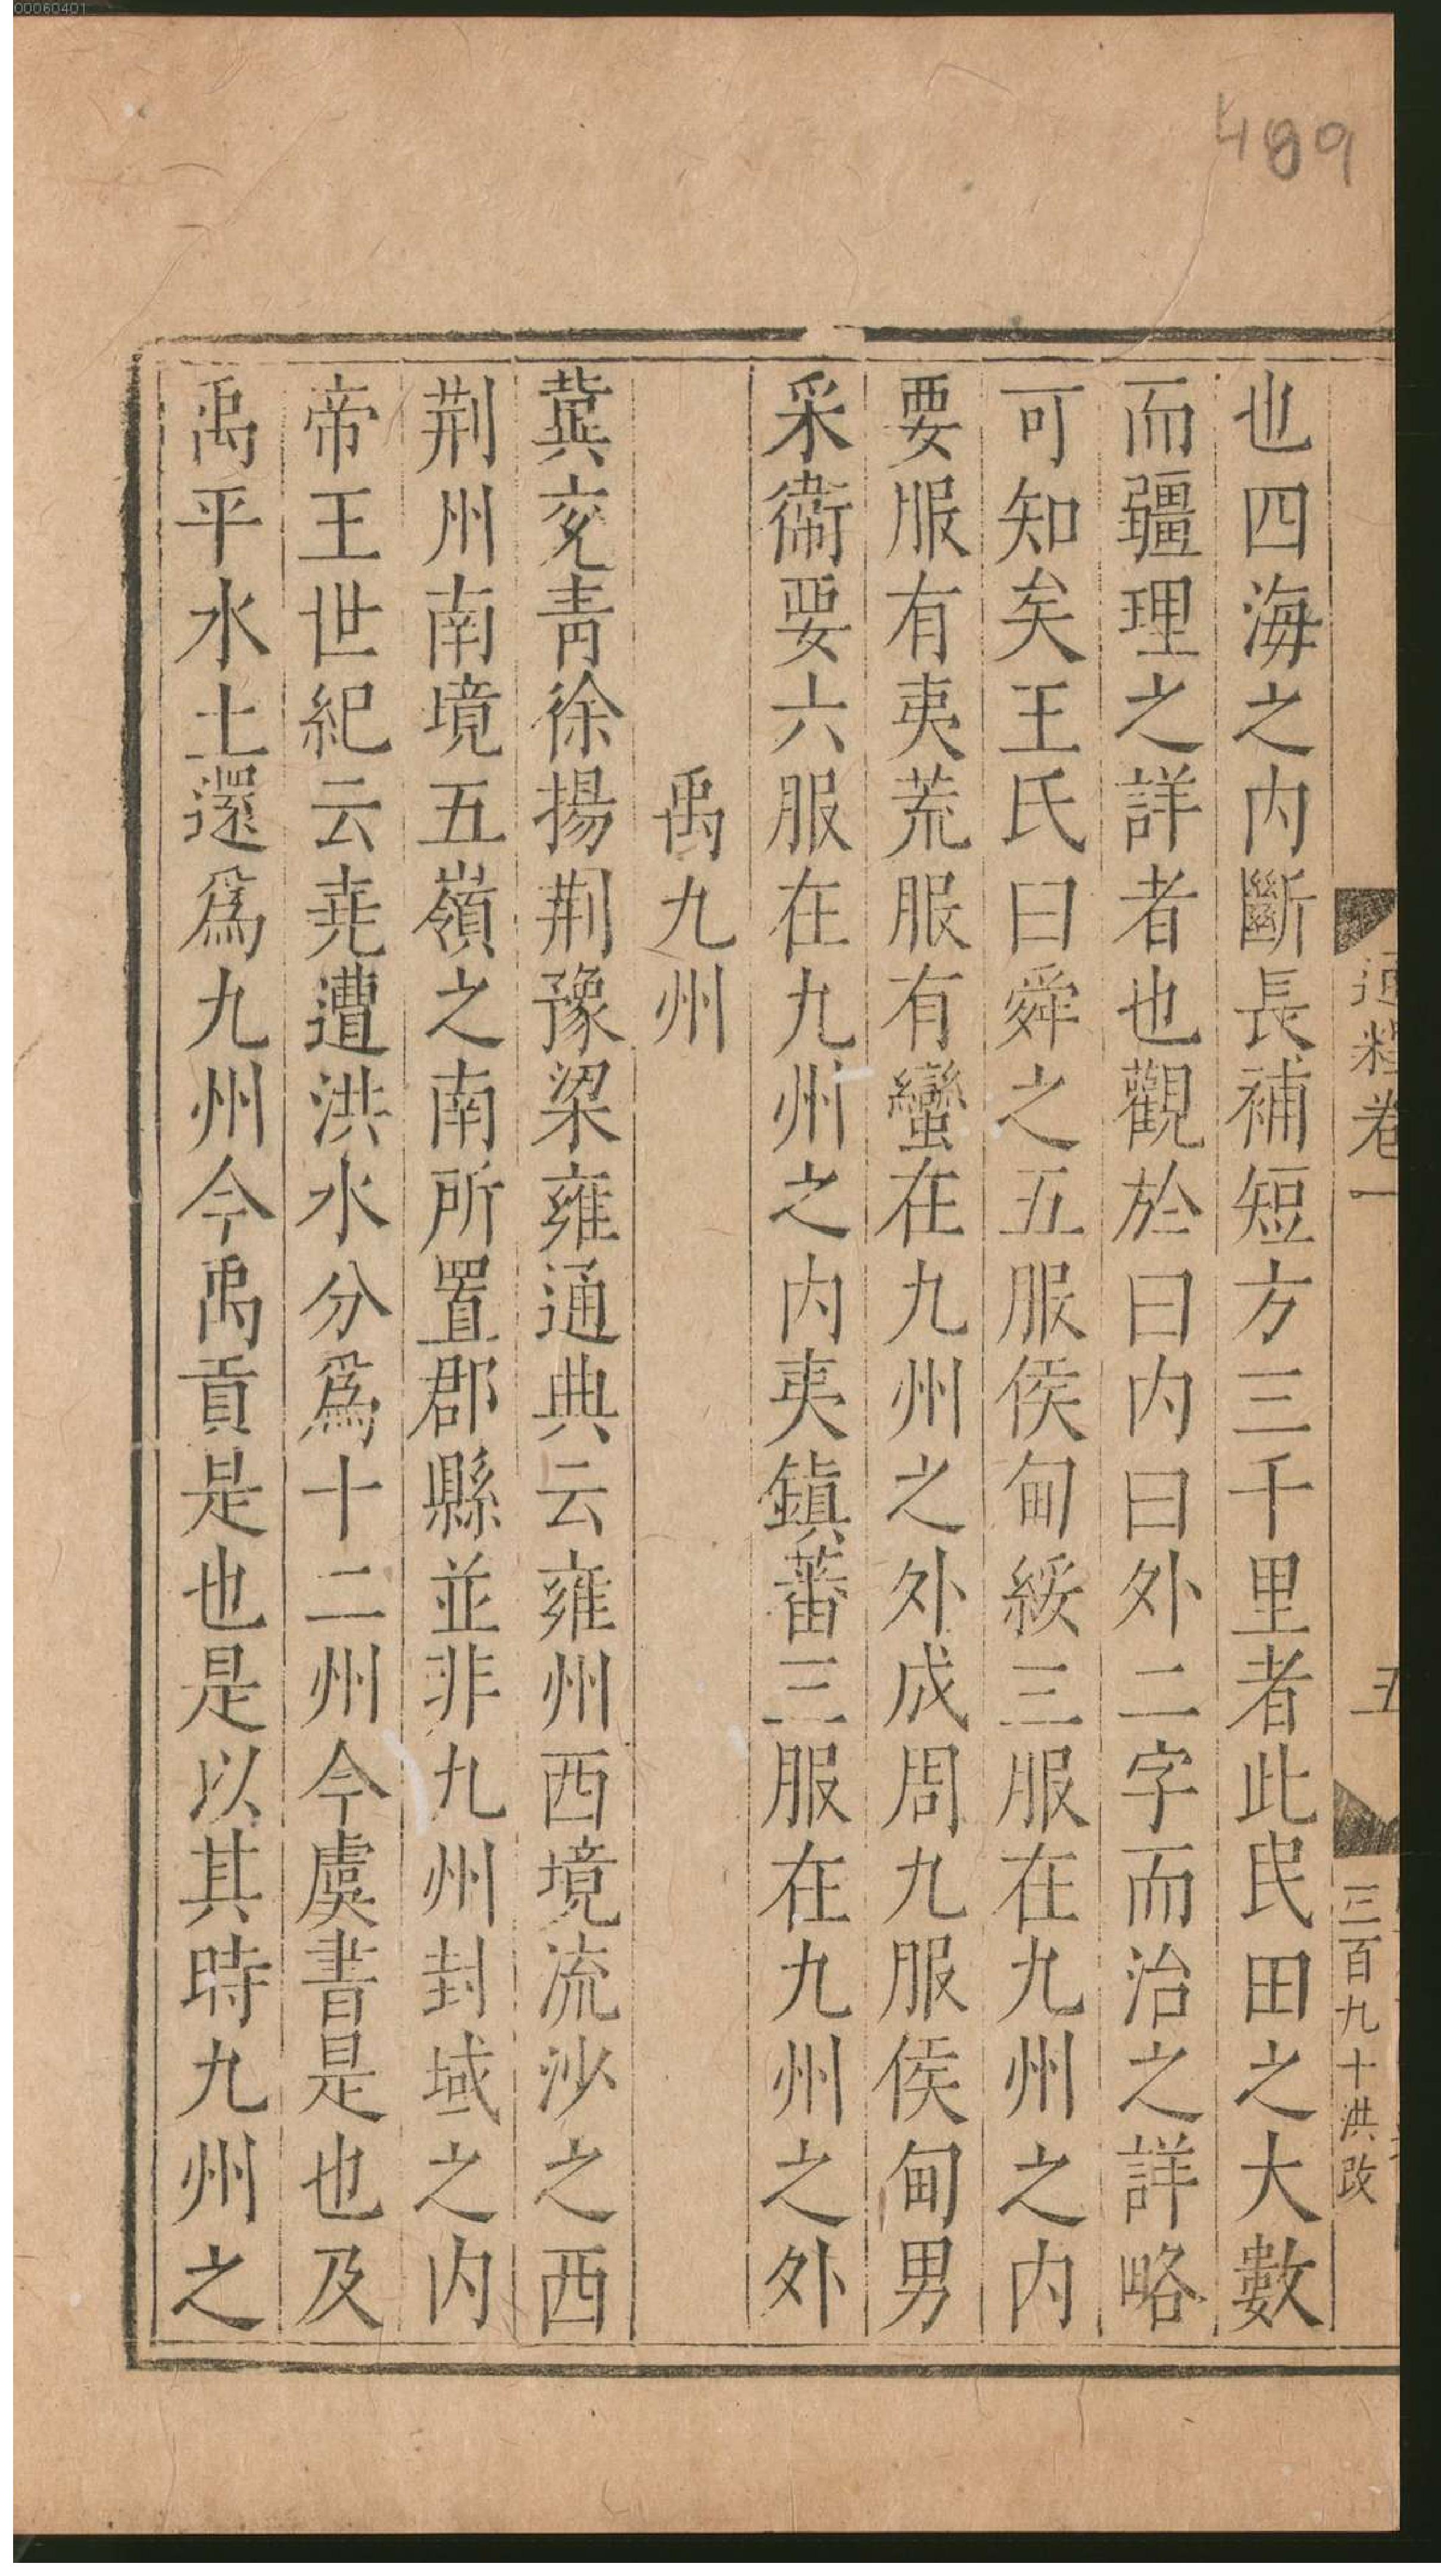 00060401
499
通釋卷一
五
三百九十洪改
也四海之内斷長補短方三千里者此民田之大數
而疆理之詳者也觀於曰内曰外二字而治之詳略
可知矣王氏曰舜之五服侯甸綏三服在九州之内
要服有夷荒服有蠻在九州之外成周九服侯甸男
采衞要六服在九州之内夷鎮蕃三服在九州之外
禹九州
冀兗青徐揚荆豫梁雍通典云雍州西境流沙之西
荆州南境五嶺之南所置郡縣並非九州封域之内
帝王世紀云堯遭洪水分爲十二州今虞書是也及
禹平水土還爲九州今禹貢是也是以其時九州之